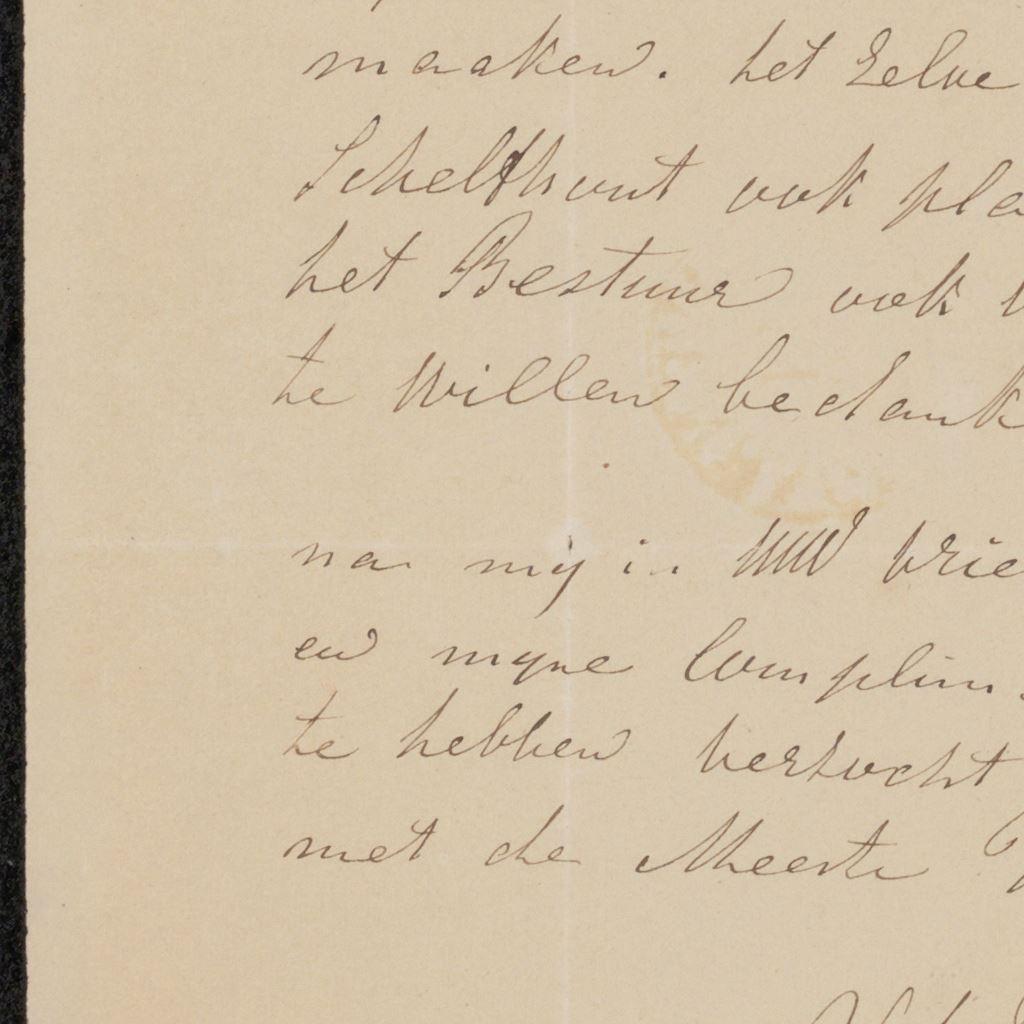 maaken. het zelve
Schelfhout ook pla
het Bestuur ook
te Willen bedank
na my in UW vrie
en myne Complim
te hebben verzocht
met de Meeste